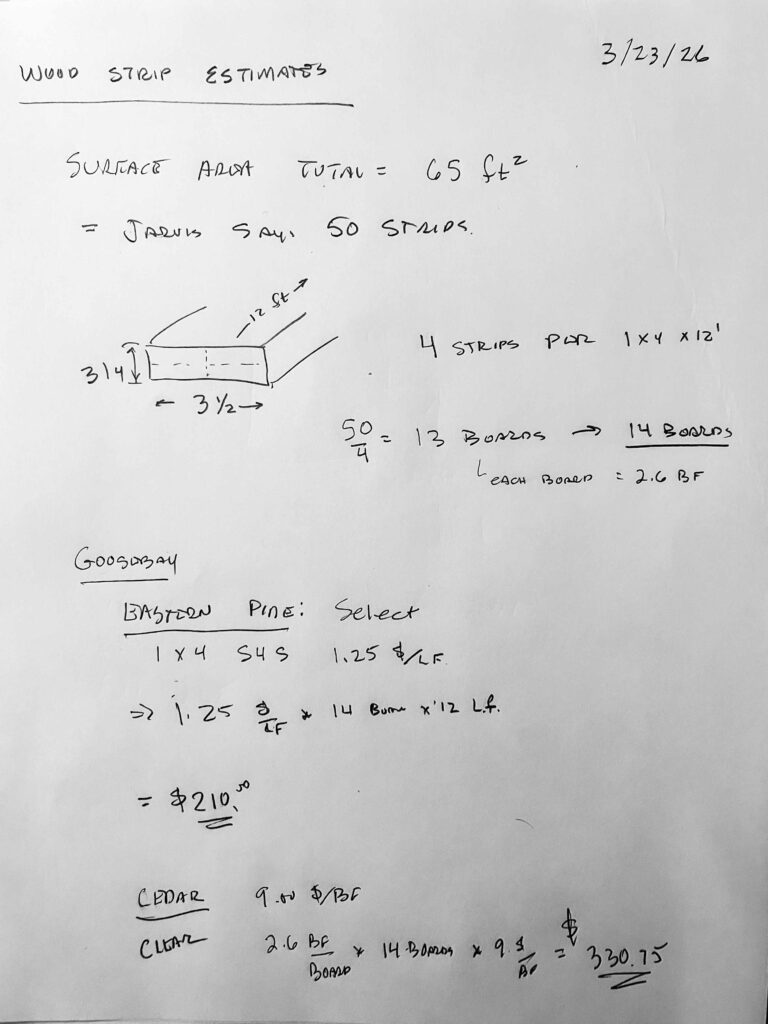 3/23/26
WOOD STRIP ESTIMATES
SURFACE AREA TOTAL = 65 ft²
= JARVIS SAY. 50 STRIPS.
12 ft
3/4
3 1/2
4 STRIPS PER 1x4 x12'
50/4 = 13 BOARDS → 14 BOARDS
EACH BOARD = 2.6 BF
GOOSEBAY
EASTERN PINE: Select
1 x 4 S4S 1.25 $/LF
⇒ 1.25 $/LF * 14 x 12 L.f.
= $210.00
CEDAR 9.00 $/BF
CLEAR 2.6 BF/BOARD * 14 BOARDS * 9. $/BF = $330.75